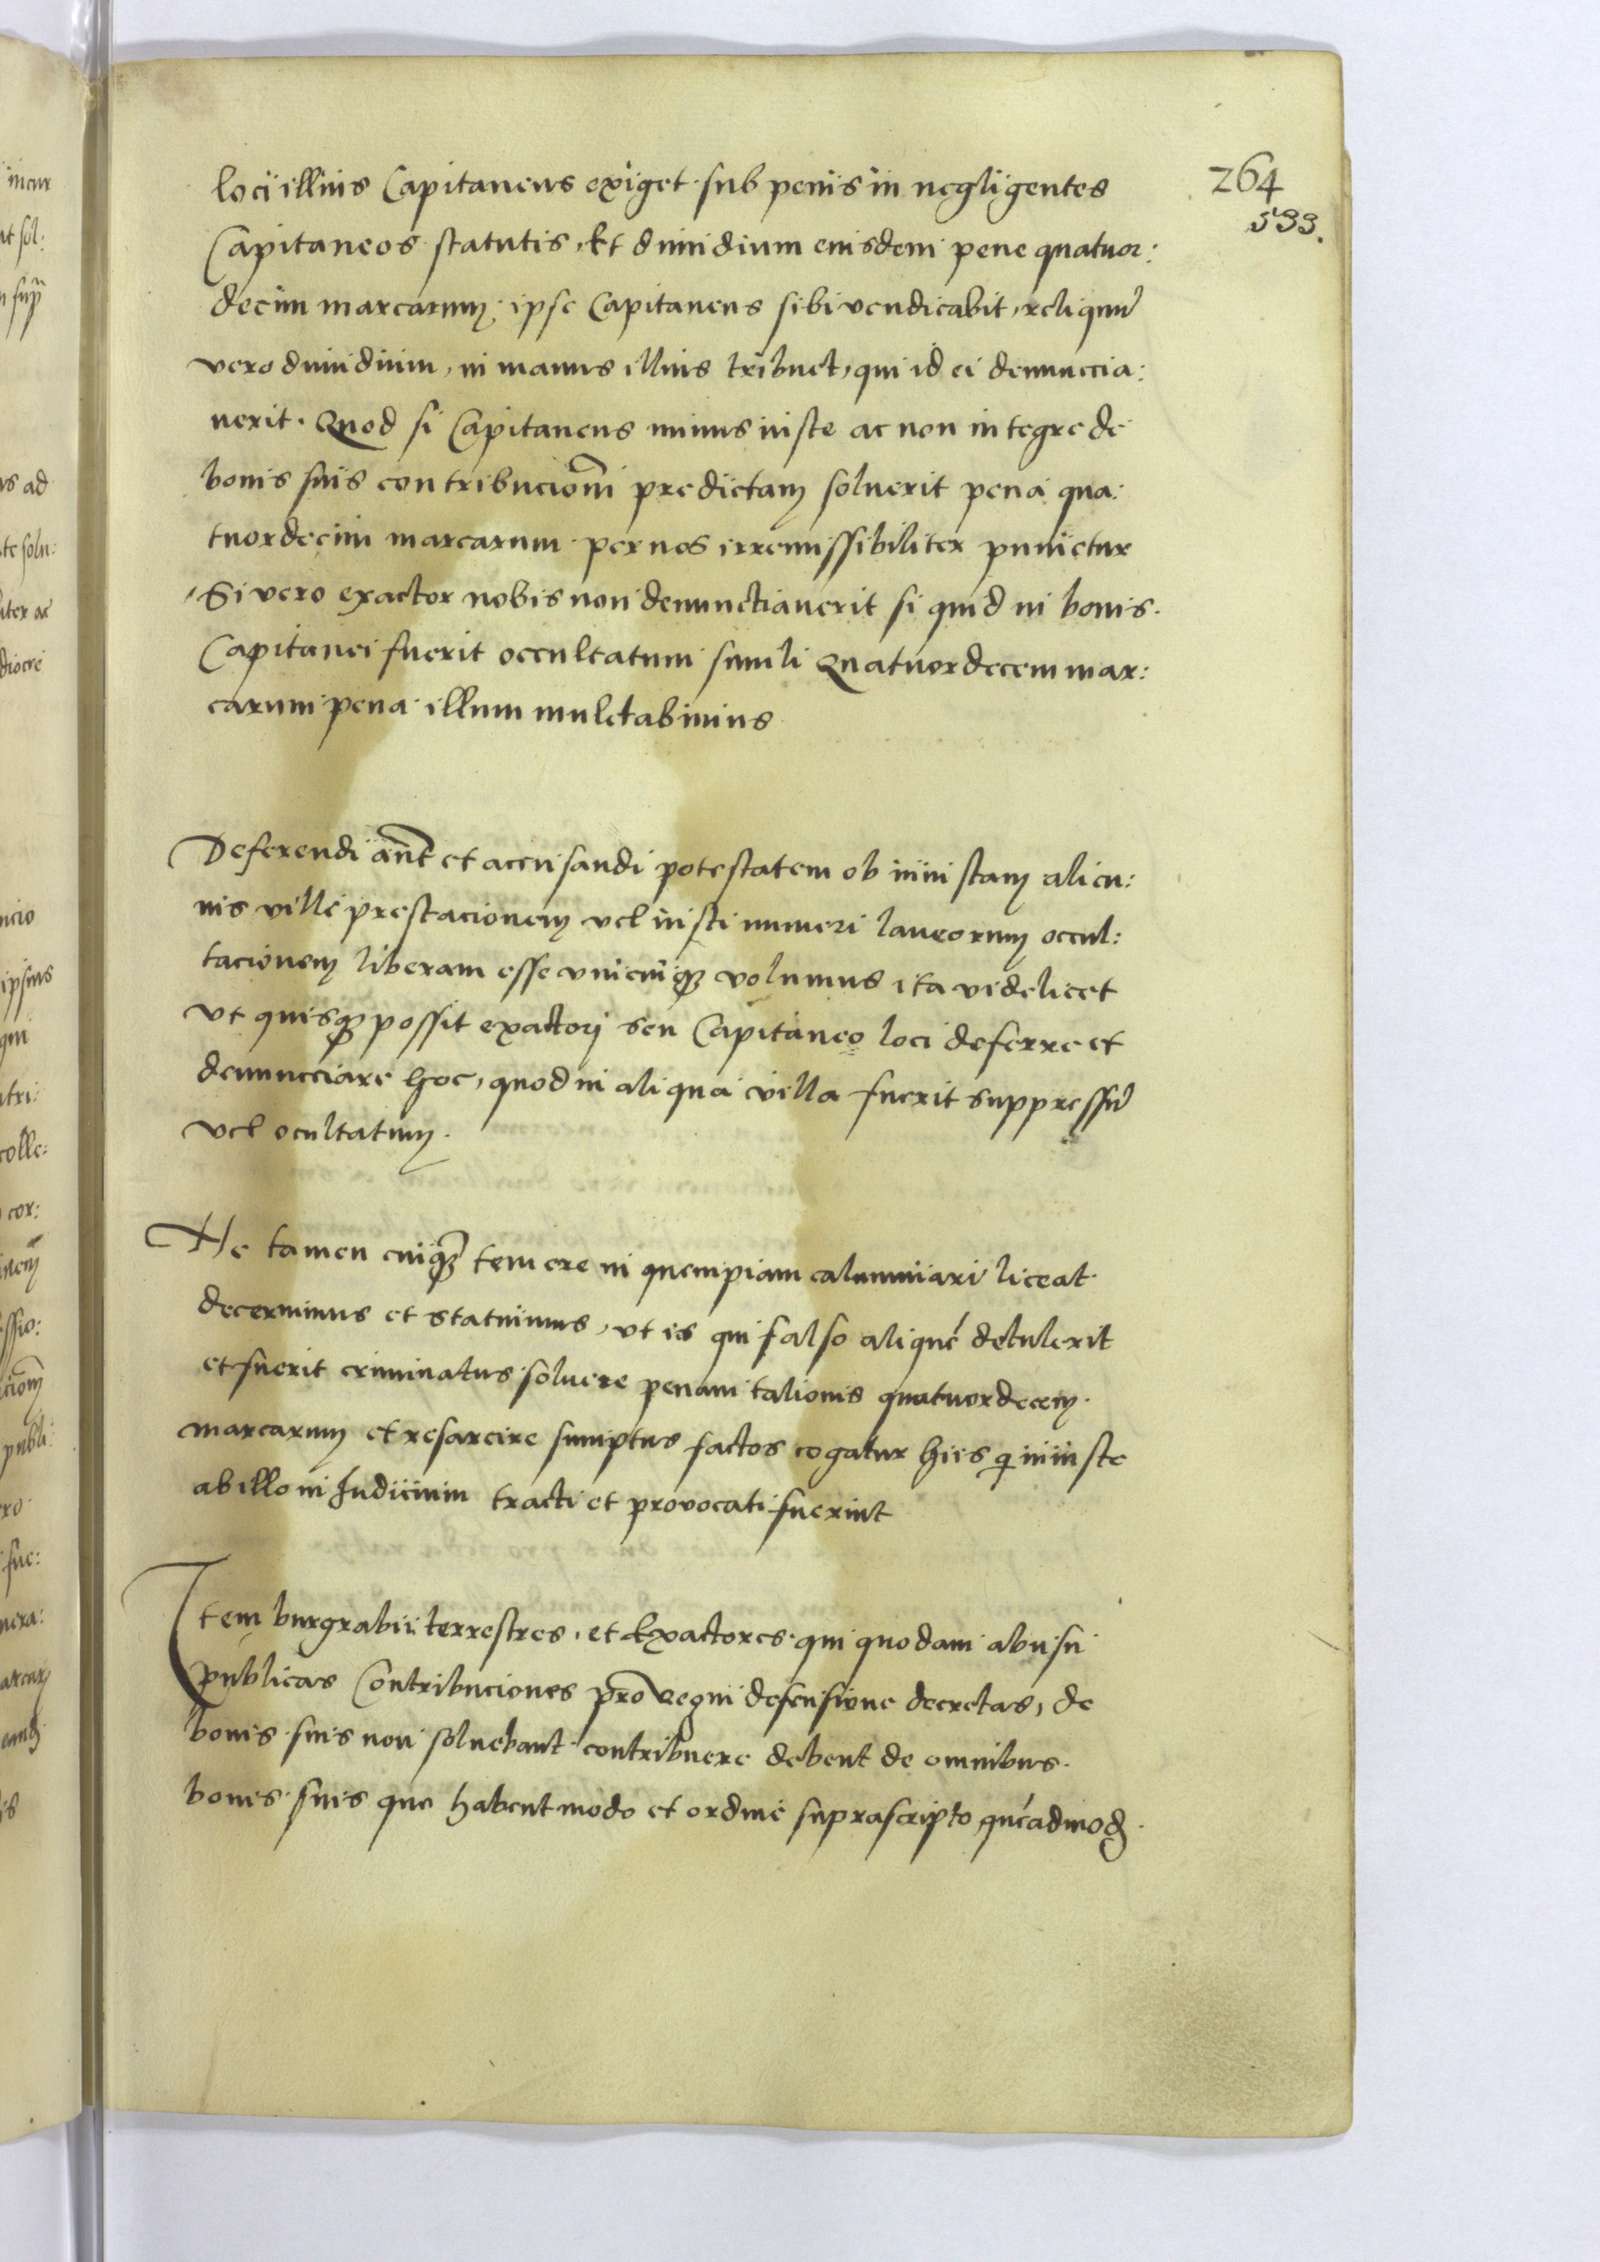 264
533.
loci illius Capitaneus exiget sub penis in negligentes
Capitaneos statutis, Et dimidium eiusdem pene quatuor:
decim marcarum ipse Capitaneus sibi vendicabit, reliquũ
vero dimidium, in manus illius tribuet, qui id ei denunccia:
uerit. Quod si Capitaneus minus iuste ac non integre de
bonis suis contribucionẽ predictam soluerit pena qua:
tuordecim marcarum per nos irremissibiliter punietur
Si vero exactor nobis non denunctiauerit si quid in bonis
Capitanei fuerit occultatum simili Quatuordecem mar:
carum pena illum mulctabimus
Deferendi aũt et accusandi potestatem ob iniustam alicu:
ius ville prestacionem vel iusti numeri laneorum occul:
tacionem liberam esse vnicuiqꝫ volumus ita videlicet
vt quisqꝫ possit exactori seu Capitaneo loci deferre et
denuncciare hoc, quod in aliqua villa fuerit suppressũ
vel ocultatum.
Ne tamen cuiqꝫ temere in quempiam calumniari liceat
decernimus et statuimus, vt is qui falso aliquẽ detulerit
et fuerit criminatus soluere penam talionis quatuordecem
marcarum et resarcire sumptus factos cogatur hiis q̃ iniuste
ab illo in Iudicium tracti et provocati fuerint
Item burgrabii terrestres, et Exactores qui quodam abusu
publicas Contribuciones pro Regni defensione decretas, de
bonis suis non soluebant contribuere debent de omnibus
bonis suis que habent modo et ordine suprascripto, quẽadmodꝫ